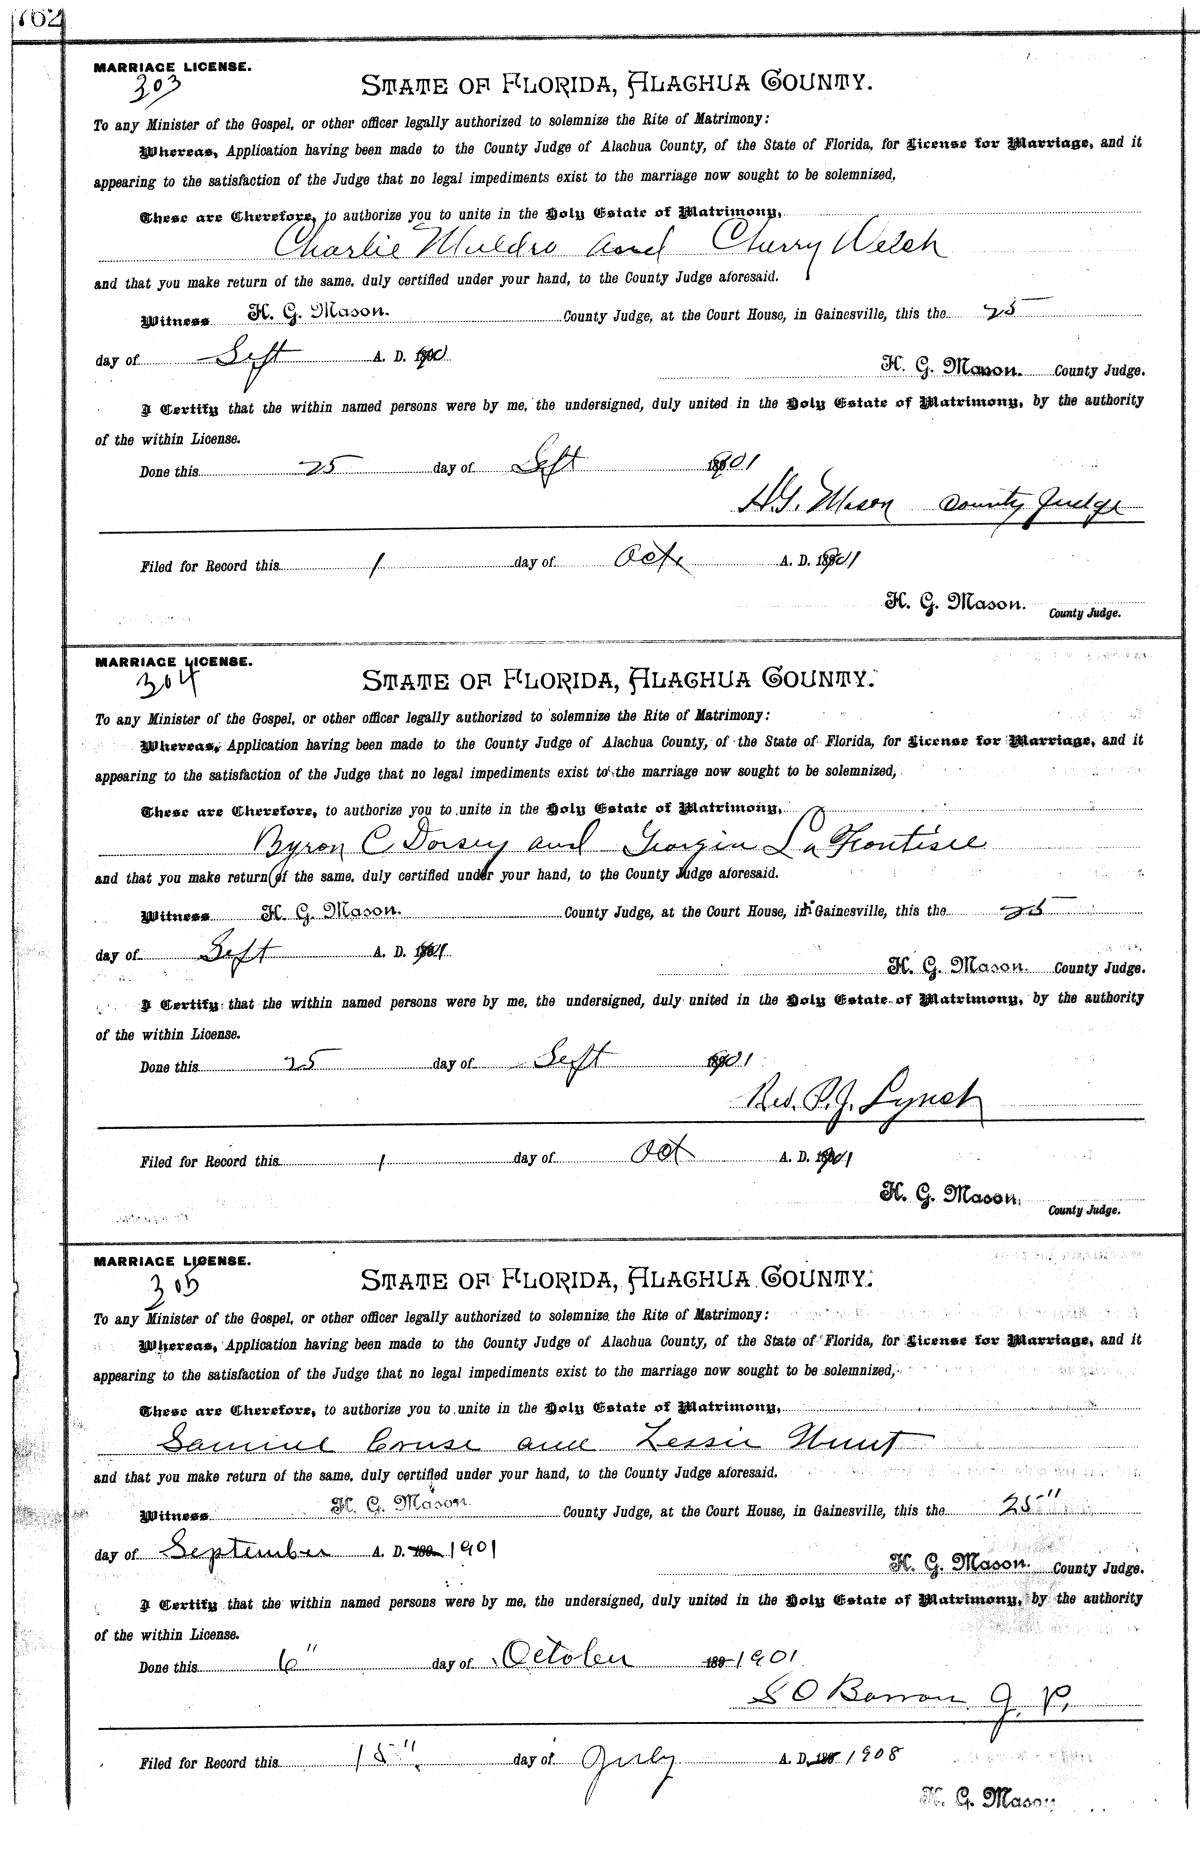 762
MARRIAGE LICENSE.
303
STATE OF FLORIDA, ALACHUA COUNTY.
To any Minister of the Gospel, or other officer legally authorized to solemnize the Rite of Matrimony:
Whereas, Application having been made to the County Judge of Alachua County, of the State of Florida, for License for Marriage, and it
appearing to the satisfaction of the Judge that no legal impediments exist to the marriage now sought to be solemnized,
These are Therefore, to authorize you to unite in the Holy Estate of Matrimony,
Charlie Muldro and Cherry Welch
and that you make return of the same, duly certified under your hand, to the County Judge aforesaid.
Witness H. G. Mason. County Judge, at the Court House, in Gainesville, this the 25
day of Sept A. D.
H. G. Mason. County Judge.
I Certify that the within named persons were by me, the undersigned, duly united in the Holy Estate of Matrimony, by the authority
of the within License.
Done this 25 day of Sept 1901
H.G. Mason County Judge
Filed for Record this 1 day of Oct. A. D. 1901
H. G. Mason.
County Judge.
MARRIAGE LICENSE.
304
STATE OF FLORIDA, ALACHUA COUNTY.
To any Minister of the Gospel, or other officer legally authorized to solemnize the Rite of Matrimony:
Whereas, Application having been made to the County Judge of Alachua County, of the State of Florida, for License for Marriage, and it
appearing to the satisfaction of the Judge that no legal impediments exist to the marriage now sought to be solemnized,
These are Therefore, to authorize you to unite in the Holy Estate of Matrimony,
Byron C Dorsey and Georgia La Fontisee
and that you make return of the same, duly certified under your hand, to the County Judge aforesaid.
Witness H. G. Mason. County Judge, at the Court House, in Gainesville, this the 25
day of Sept A. D. 1901
H. G. Mason. County Judge.
I Certify that the within named persons were by me, the undersigned, duly united in the Holy Estate of Matrimony, by the authority
of the within License.
Done this 25 day of Sept 1901
Rev. P. J. Lynch
Filed for Record this 1 day of Oct A. D. 1901
H. G. Mason.
County Judge.
MARRIAGE LICENSE.
305
STATE OF FLORIDA, ALACHUA COUNTY.
To any Minister of the Gospel, or other officer legally authorized to solemnize the Rite of Matrimony:
Whereas, Application having been made to the County Judge of Alachua County, of the State of Florida, for License for Marriage, and it
appearing to the satisfaction of the Judge that no legal impediments exist to the marriage now sought to be solemnized,
These are Therefore, to authorize you to unite in the Holy Estate of Matrimony,
Samuel Cruse and Lessie Hunt
and that you make return of the same, duly certified under your hand, to the County Judge aforesaid.
Witness H. G. Mason. County Judge, at the Court House, in Gainesville, this the 25"
day of September A. D. 1901
H. G. Mason. County Judge.
I Certify that the within named persons were by me, the undersigned, duly united in the Holy Estate of Matrimony, by the authority
of the within License.
Done this 6" day of October 1901
S O Barron J. P.
Filed for Record this 15" day of July A. D. 1908
H. G. Mason